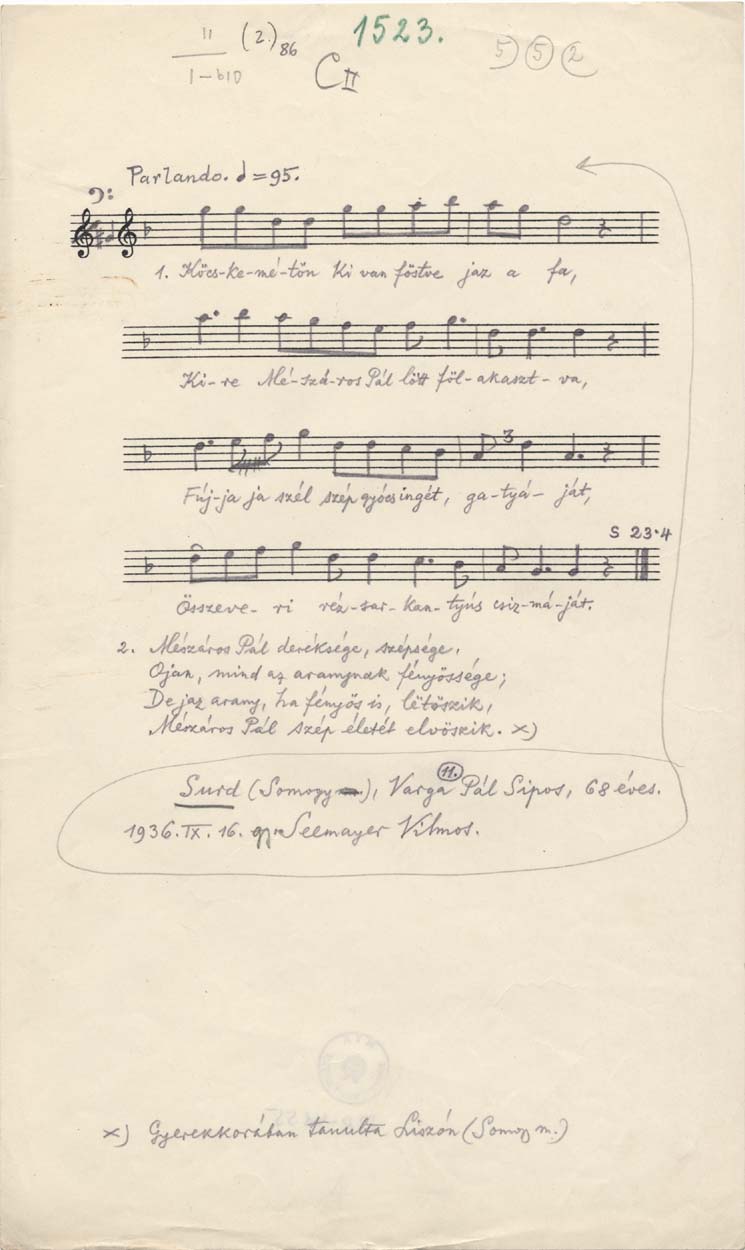 II (2.) 86 1523. 5 5 2
I-b10 C II
Parlando. =95.
1. Köcs-ke-mé-tön Ki van föstve jaz a fa,
Ki-re Mé-szá-ros Pál lött föl-akaszt-va,
3
Fúj-ja ja szél szép gyócsingét, ga-tyá-ját,
S 23·4
Összeve-ri réz-sar-kan-tyús csiz-má-ját.
2. Mészáros Pál deréksége, szépsége,
Ojan, mind az aramynak fényössége;
De jaz arany, ha fényös is, lëtöszik,
Mészáros Pál szép életét elvöszik. x)
11.
Surd (Somogy), Varga Pál Sipos, 68 éves.
1936.IX.16. gy. Seemayer Vilmos.
x) Gyerekkorában tanulta Liszón (Somogy m.)